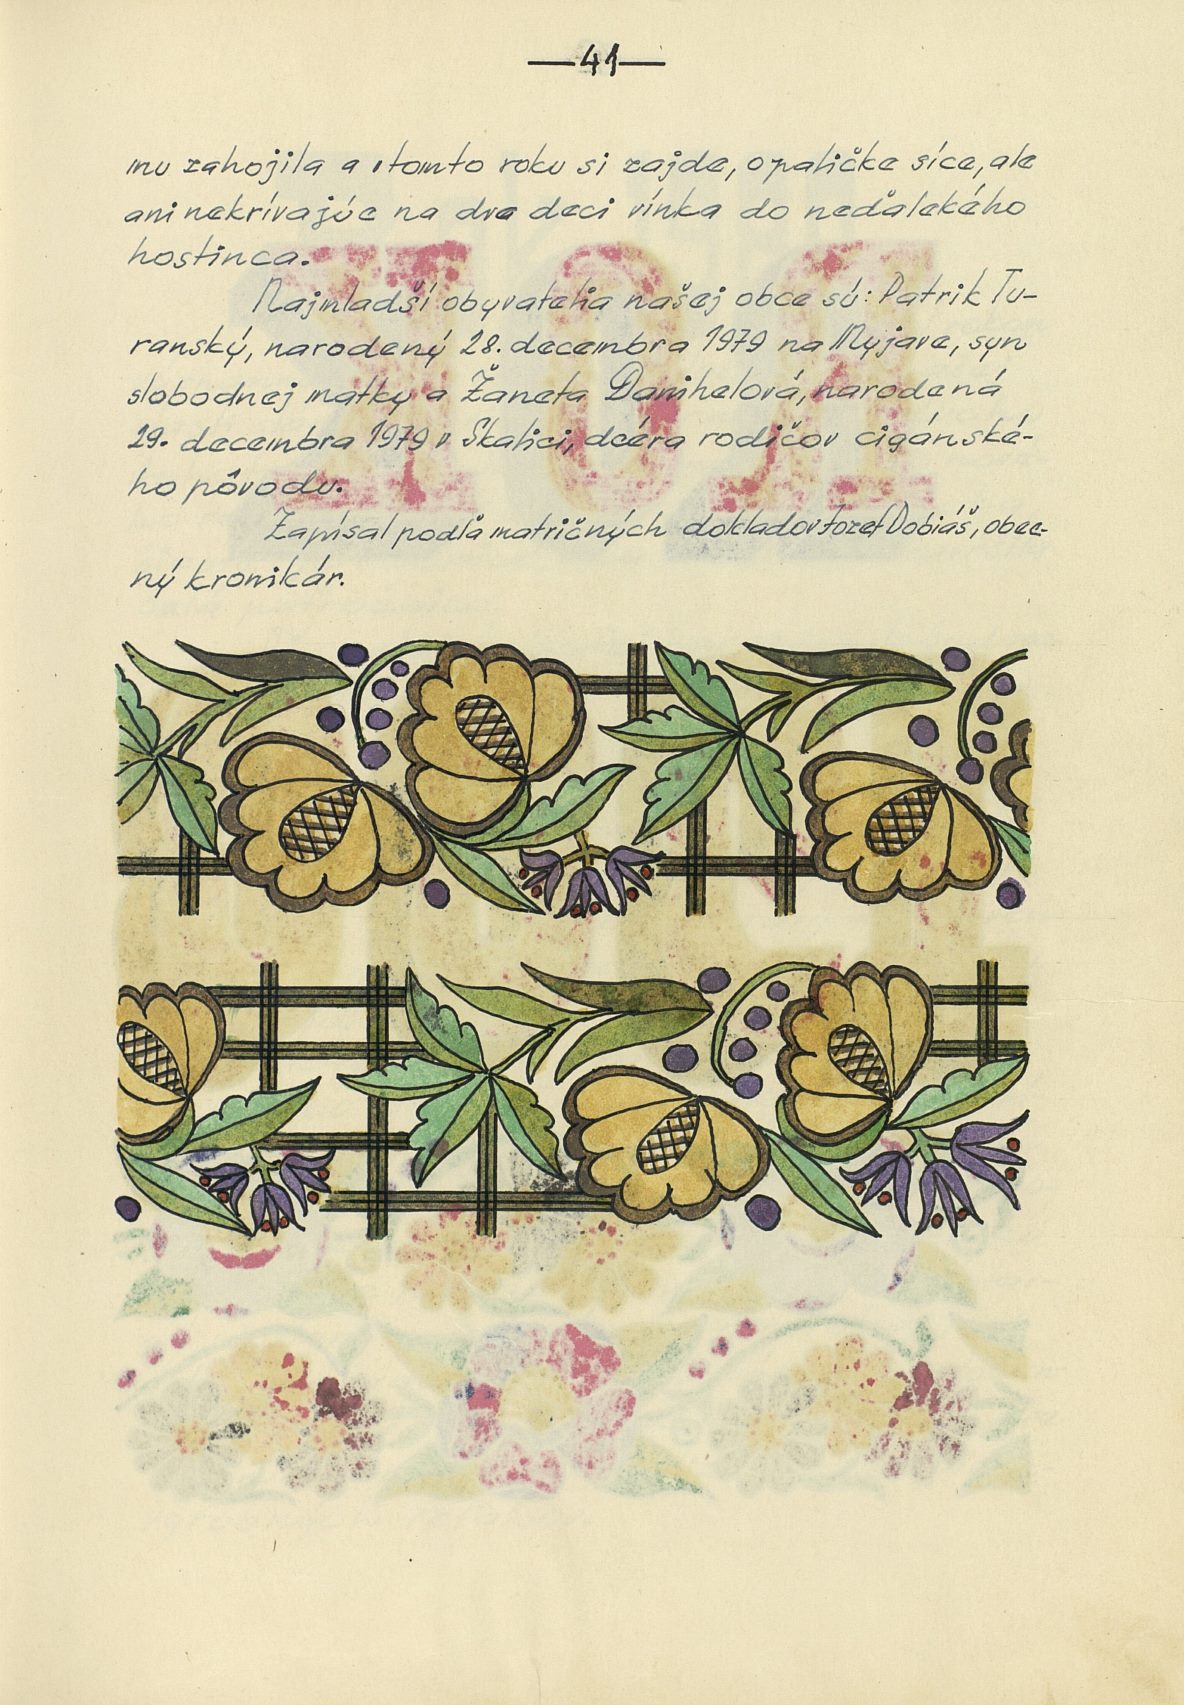 — 41 —
mu zahojila a v tomto roku si zajde, o paličke síce, ale
ani nekrívajúc na dva deci vínka do neďalekého
hostinca.
Najmladší obyvatelia našej obce sú: Patrik Tu-
ranský, narodený 28. decembra 1979 na Myjave, syn
slobodnej matky a Žaneta Danihelová, narodená
29. decembra 1979 v Skalici, dcéra rodičov cigánské-
ho pôvodu.
Zapísal podľa matričných dokladov Jozef Dobiáš, obec-
ný kronikár.